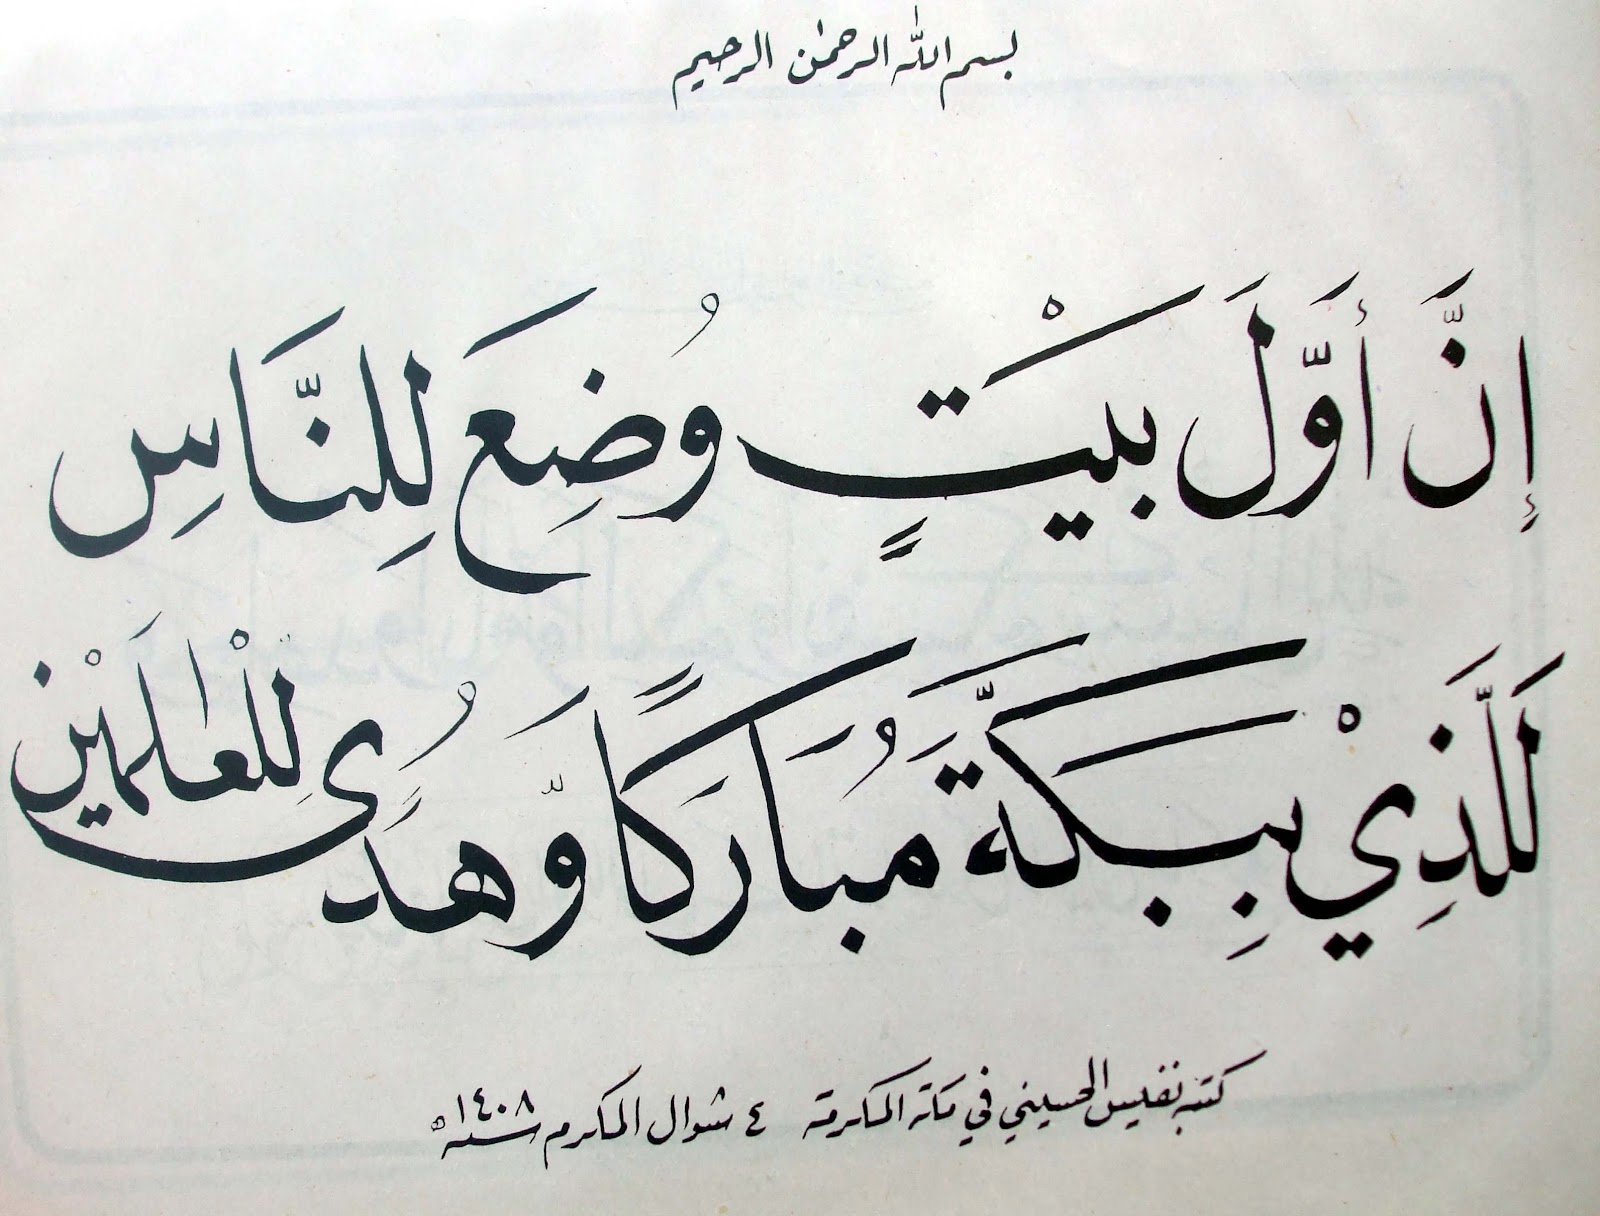 بسم الله الرحمٰن الرحيم
إِنَّ أَوَّلَ بَيْتٍ وُضِعَ لِلنَّاسِ
لَلَّذِيْ بِبَكَّةَ مُبَارَكًا وَّهُدًى لِّلْعٰلَمِيْنَ
كتبه نفيس الحسيني في مكة المكرمة ٤ شوال المكرم سنه ١٤٠٨ه